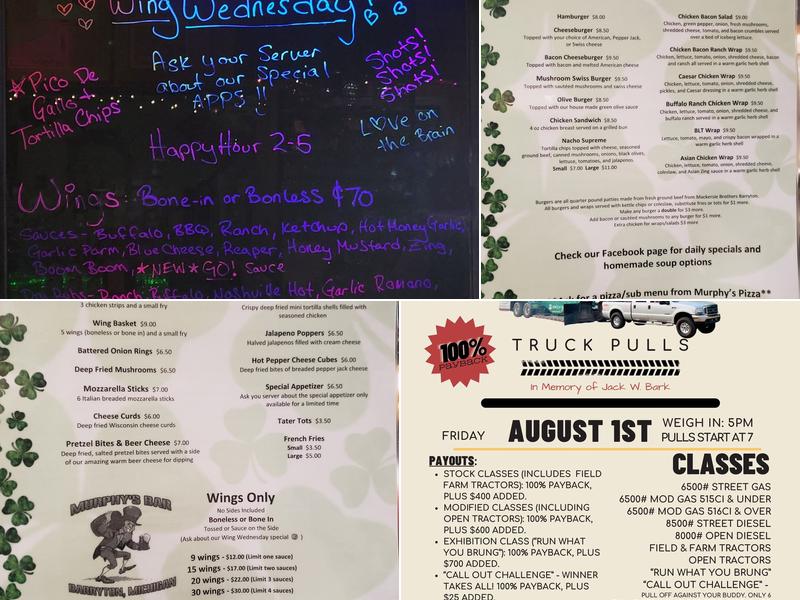 Wing Wednesday!
Ask your Server
about our Special
APPS !!
Shots!
Shots!
Shots!
*Pico De
Gallo +
Tortilla Chips
Love on
the Brain
Happy Hour 2-5
Wings: Bone-in or Bonless
Sauces- Buffalo, BBQ, Ranch, Ketchup, Hot Honey Garlic,
Garlic Parm, Blue Cheese, Reaper, Honey Mustard, Zing,
Boom Boom, *NEW* GO! Sauce
Dry Rubs- Ranch, Buffalo, Nashville Hot, Garlic Romano,
Hamburger $8.00
Cheeseburger $8.50
Topped with your choice of American, Pepper Jack,
or Swiss cheese
Bacon Cheeseburger $9.50
Topped with bacon and melted American cheese
Mushroom Swiss Burger $9.50
Topped with sautéed mushrooms and swiss cheese
Olive Burger $8.50
Topped with our house made green olive sauce
Chicken Sandwich $8.00
4 oz chicken breast served on a grilled bun
Nacho Supreme
Tortilla chips topped with cheese, seasoned
ground beef, canned mushrooms, onions, black olives,
lettuce, tomatoes, and jalapenos.
Small $7.00 Large $11.00
Chicken Bacon Salad $9.00
Chicken, green pepper, onion, fresh mushrooms,
shredded cheese, tomato, and bacon crumbles served
over a bed of iceberg lettuce.
Chicken Bacon Ranch Wrap $9.50
Chicken, lettuce, tomato, onion, shredded cheese, bacon
and ranch all served in a warm garlic herb shell
Caesar Chicken Wrap $9.50
Chicken, lettuce, tomato, onion, shredded cheese,
pickles, and Caesar dressing in a warm garlic herb shell
Buffalo Ranch Chicken Wrap $9.50
Chicken, lettuce, tomato, onion, shredded cheese, and
buffalo ranch served in a warm garlic herb shell
BLT Wrap $9.50
Lettuce, tomato, mayo, and crispy bacon wrapped in a
warm garlic herb shell
Asian Chicken Wrap $9.50
Chicken, lettuce, tomato, onion, shredded cheese,
coleslaw, and Asian Zing sauce in a warm garlic herb shell
Burgers are all quarter pound patties made from fresh ground beef from Mackersie Brothers Barryton.
All burgers and wraps served with kettle chips or coleslaw, substitute fries or tots for $1 more.
Make any burger a double for $3 more.
Add bacon or sauteed mushrooms to any burger for $1 more.
Extra chicken for wraps/salads $3 more
Check our Facebook page for daily specials and
homemade soup options
for a pizza/sub menu from Murphy's Pizza**
3 chicken strips and a small fry
Wing Basket $9.00
5 wings (boneless or bone in) and a small fry
Battered Onion Rings $6.50
Deep Fried Mushrooms $6.50
Mozzarella Sticks $7.00
6 Italian breaded mozzarella sticks
Cheese Curds $6.00
Deep fried Wisconsin cheese curds
Pretzel Bites & Beer Cheese $7.00
Deep fried, salted pretzel bites served with a side
of our amazing warm beer cheese for dipping
Crispy deep fried mini tortilla shells filled with
seasoned chicken
Jalapeno Poppers $6.50
Halved jalapenos filled with cream cheese
Hot Pepper Cheese Cubes $6.00
Deep fried bites of breaded pepper jack cheese
Special Appetizer $6.50
Ask you server about the special appetizer only
available for a limited time
Tater Tots $3.50
French Fries
Small $3.50
Large $5.00
MURPHY'S BAR
BARRYTON, MICHIGAN
Wings Only
No Sides Included
Boneless or Bone In
Tossed or Sauce on the Side
(Ask about our Wing Wednesday special)
9 wings - $12.00 (Limit one sauce)
15 wings - $17.00 (Limit two sauces)
20 wings - $22.00 (Limit 3 sauces)
30 wings - $30.00 (Limit 4 sauces)
100%
PAYBACK
TRUCK PULLS
In Memory of Jack W. Bark
FRIDAY
AUGUST 1ST
WEIGH IN: 5PM
PULLS START AT 7
PAYOUTS:
• STOCK CLASSES (INCLUDES FIELD
FARM TRACTORS): 100% PAYBACK,
PLUS $400 ADDED.
• MODIFIED CLASSES (INCLUDING
OPEN TRACTORS): 100% PAYBACK,
PLUS $600 ADDED.
• EXHIBITION CLASS ("RUN WHAT
YOU BRUNG"): 100% PAYBACK, PLUS
$700 ADDED.
• "CALL OUT CHALLENGE" - WINNER
TAKES ALL! 100% PAYBACK, PLUS
$25 ADDED.
CLASSES
6500# STREET GAS
6500# MOD GAS 515CI & UNDER
6500# MOD GAS 516CI & OVER
8500# STREET DIESEL
8000# OPEN DIESEL
FIELD & FARM TRACTORS
OPEN TRACTORS
"RUN WHAT YOU BRUNG"
"CALL OUT CHALLENGE" -
PULL OFF AGAINST YOUR BUDDY. ONLY 6